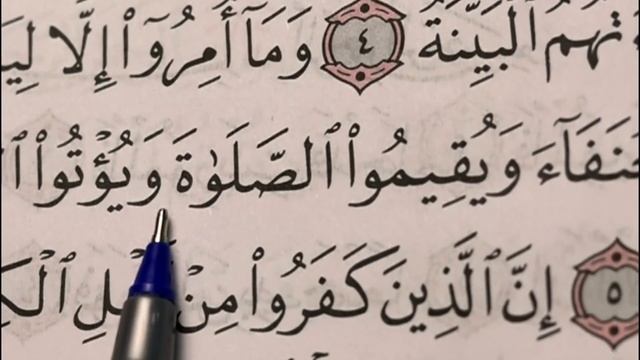 تْهُمُ ٱلْبَيِّنَةُ ٤ وَمَآ أُمِرُوٓا۟ إِلَّا
حُنَفَآءَ وَيُقِيمُوا۟ ٱلصَّلَوٰةَ وَيُؤْتُوا۟
٥ إِنَّ ٱلَّذِينَ كَفَرُوا۟ مِنْ